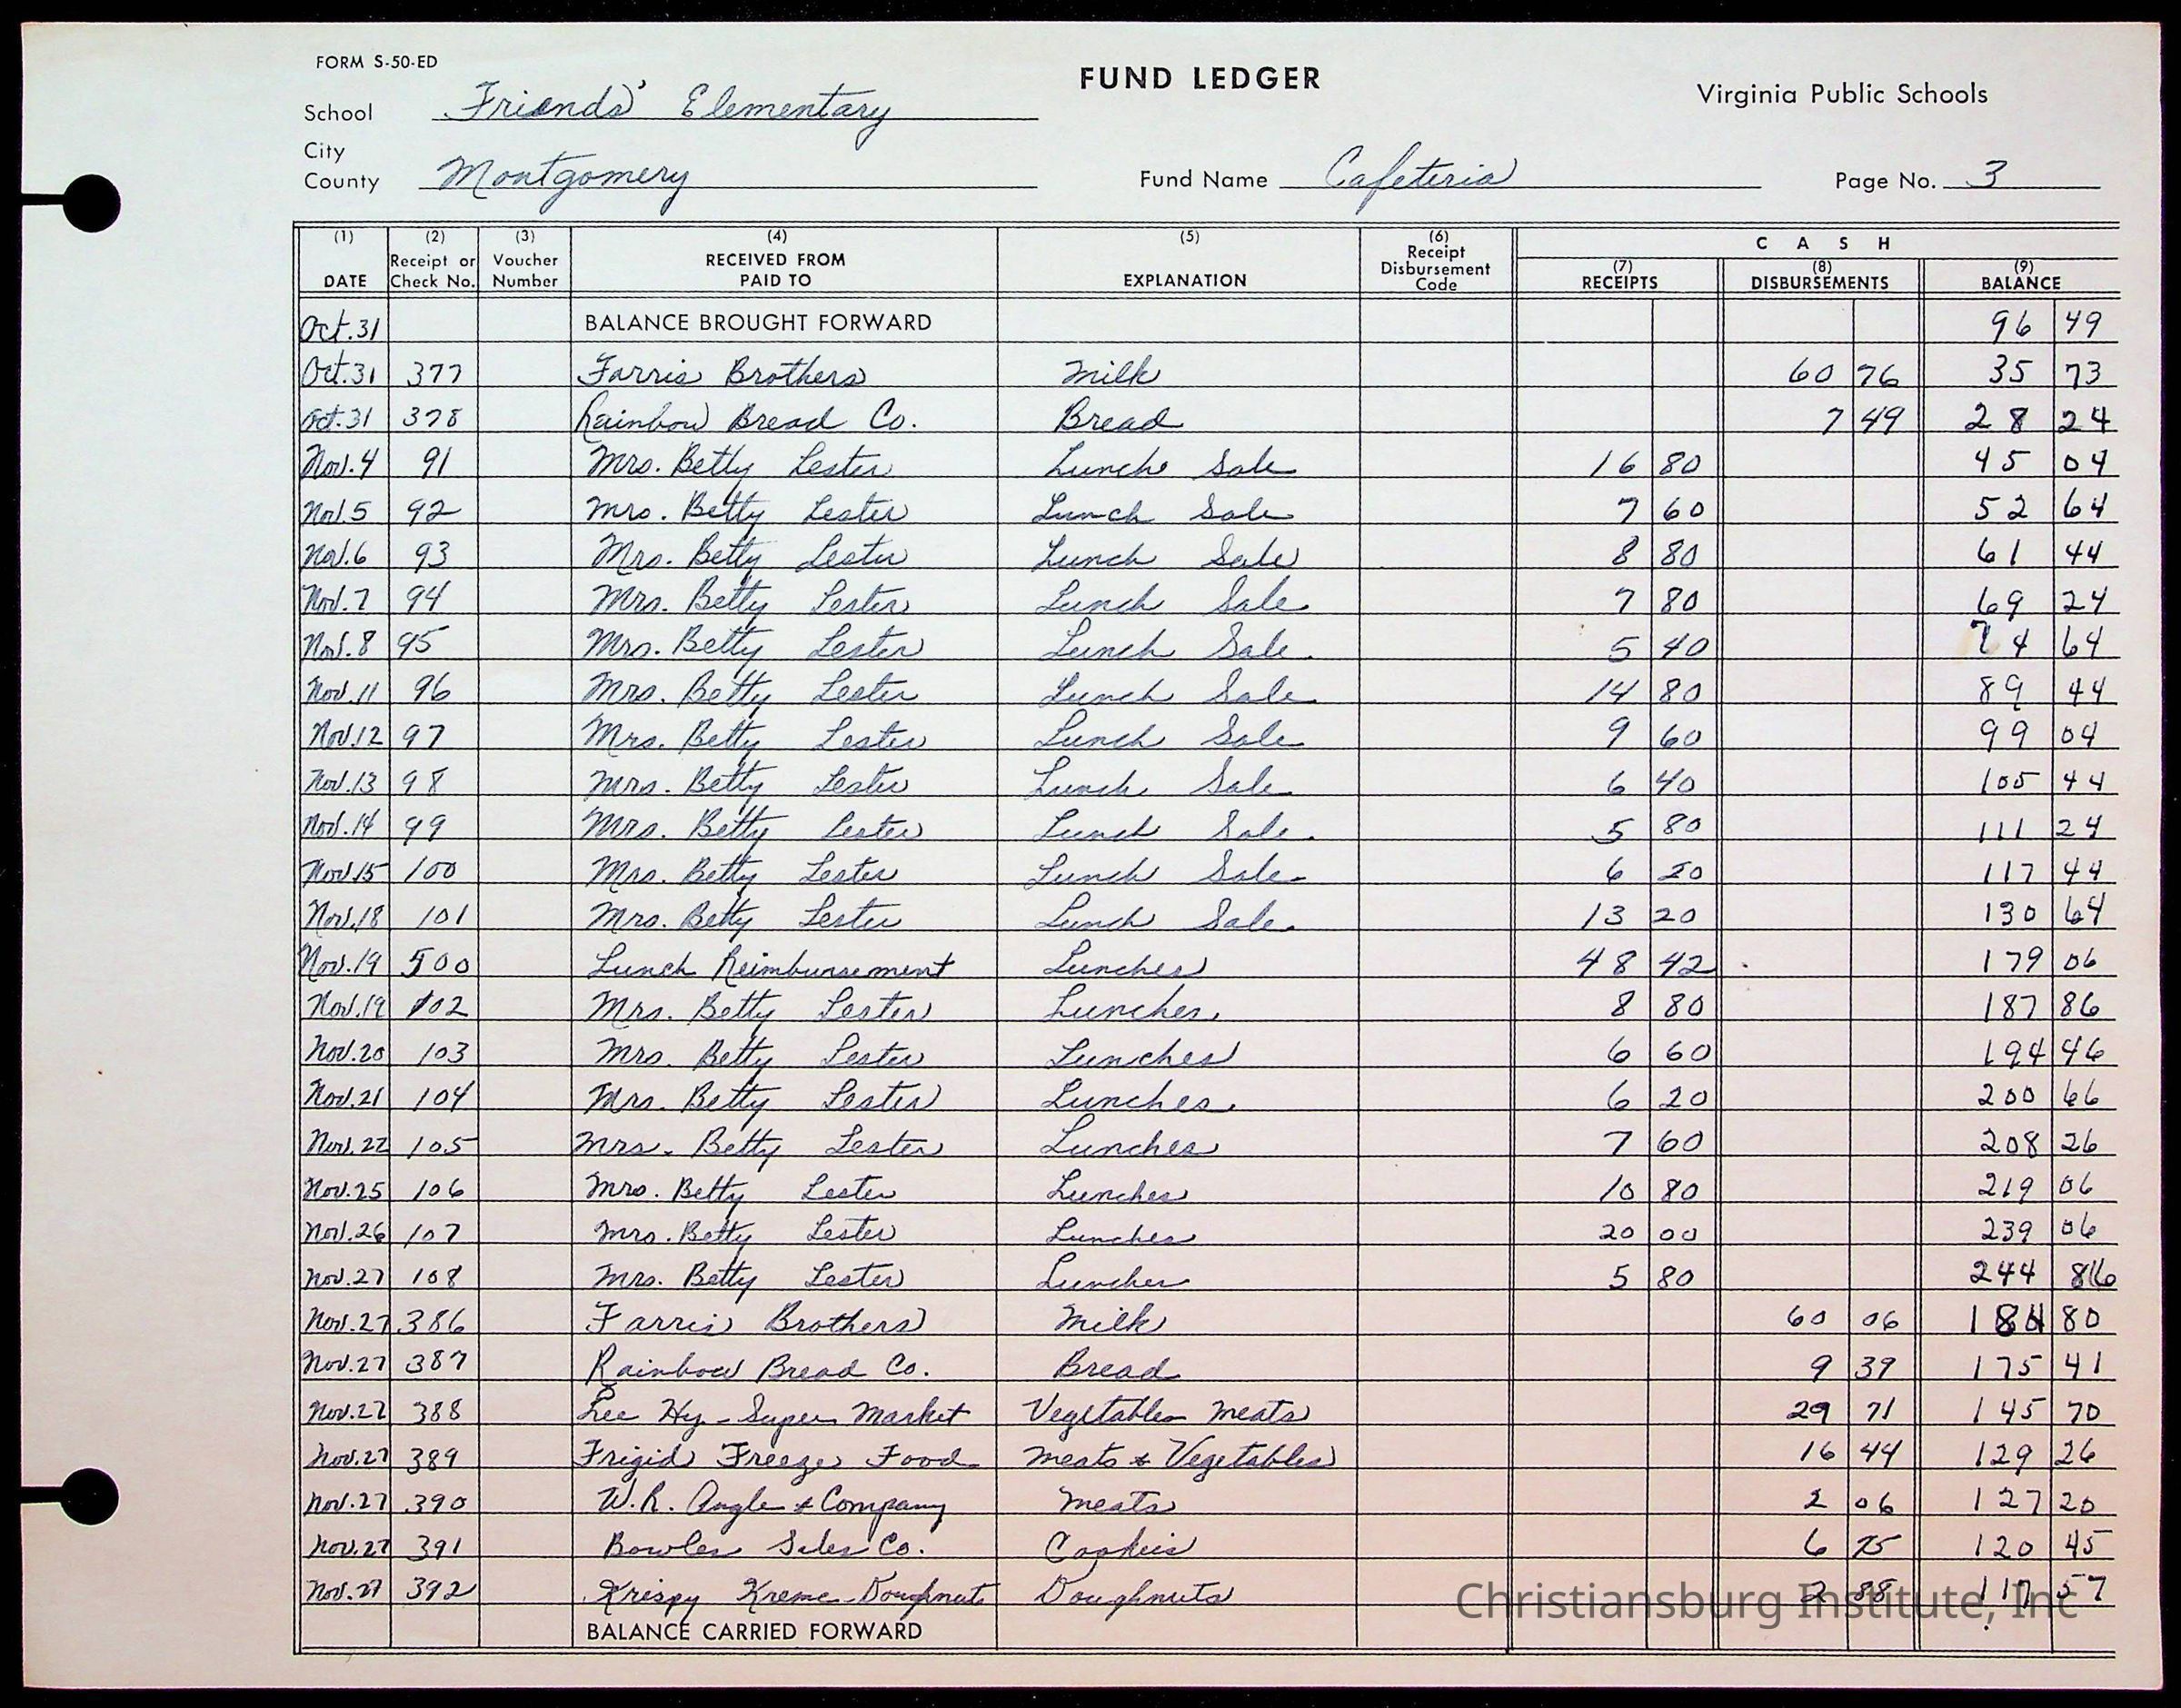 FORM S-50-ED
FUND LEDGER
Virginia Public Schools
School Friends' Elementary
City
County Montgomery Fund Name Cafeteria Page No. 3
(1) DATE (2) Receipt or Check No. (3) Voucher Number (4) RECEIVED FROM PAID TO (5) EXPLANATION (6) Receipt Disbursement Code CASH (7) RECEIPTS (8) DISBURSEMENTS (9) BALANCE
Oct.31 BALANCE BROUGHT FORWARD 96 49
Oct.31 377 Farris Brothers Milk 60 76 35 73
Oct.31 378 Rainbow Bread Co. Bread 7 49 28 24
Nov.4 91 Mrs. Betty Lester Lunch Sale 16 80 45 04
Nov.5 92 Mrs. Betty Lester Lunch Sale 7 60 52 64
Nov.6 93 Mrs. Betty Lester Lunch Sale 8 80 61 44
Nov.7 94 Mrs. Betty Lester Lunch Sale 7 80 69 24
Nov.8 95 Mrs. Betty Lester Lunch Sale. 5 40 74 64
Nov.11 96 Mrs. Betty Lester Lunch Sale 14 80 89 44
Nov.12 97 Mrs. Betty Lester Lunch Sale 9 60 99 04
Nov.13 98 Mrs. Betty Lester Lunch Sale 6 40 105 44
Nov.14 99 Mrs. Betty Lester Lunch Sale. 5 80 111 24
Nov.15 100 Mrs. Betty Lester Lunch Sale 6 20 117 44
Nov.18 101 Mrs. Betty Lester Lunch Sale. 13 20 130 64
Nov.19 500 Lunch Reimbursement Lunches 48 42 179 06
Nov.19 102 Mrs. Betty Lester Lunches 8 80 187 86
Nov.20 103 Mrs. Betty Lester Lunches 6 60 194 46
Nov.21 104 Mrs. Betty Lester Lunches 6 20 200 66
Nov.22 105 Mrs. Betty Lester Lunches 7 60 208 26
Nov.25 106 Mrs. Betty Lester Lunches 10 80 219 06
Nov.26 107 Mrs. Betty Lester Lunches 20 00 239 06
Nov.27 108 Mrs. Betty Lester Lunches 5 80 244 86
Nov.27 386 Farris Brothers Milk 60 06 184 80
Nov.27 387 Rainbow Bread Co. Bread 9 39 175 41
Nov.27 388 Lee Hy- Super Market Vegetables Meats 29 71 145 70
Nov.27 389 Frigid Freeze Food Meats & Vegetables 16 44 129 26
Nov.27 390 W.R. Angle & Company Meats 2 06 127 20
Nov.27 391 Bowles Sales Co. Cookies 6 75 120 45
Nov.27 392 Krispy Kreme Doughnuts Doughnuts 2 88 117 57
Christiansburg Institute, Inc
BALANCE CARRIED FORWARD